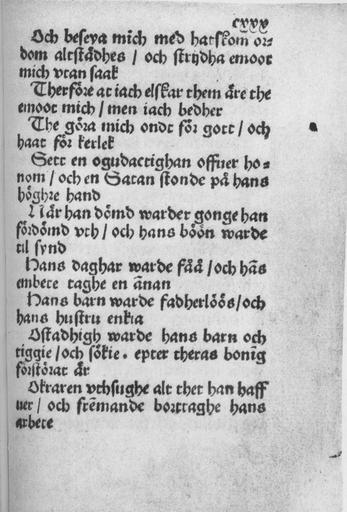 cxxx
Och beseya mich med hatskom or⸗
dom altstådhes / och strijdha emoot
mich vtan saak
Therföre at iach elskar them äre the
emoot mich / men iach bedher
The göra mich ondt för gott / och
haat för kerlek
Sett en ogudactighan offuer ho⸗
nom / och en Satan stonde på hans
höghre hand
När han dömd warder gonge han
fördömd vth / och hans böön warde
til synd
Hans daghar warde fåå / och hãs
embete taghe en ãnan
Hans barn warde fadherlöös / och
hans hustru enkia
Ostadhigh warde hans barn och
tiggie / och sökie . epter theras bonĩg
förstörat är
Okraren vthsughe alt thet han haff
uer / och frẽmande borttaghe hans
arbete